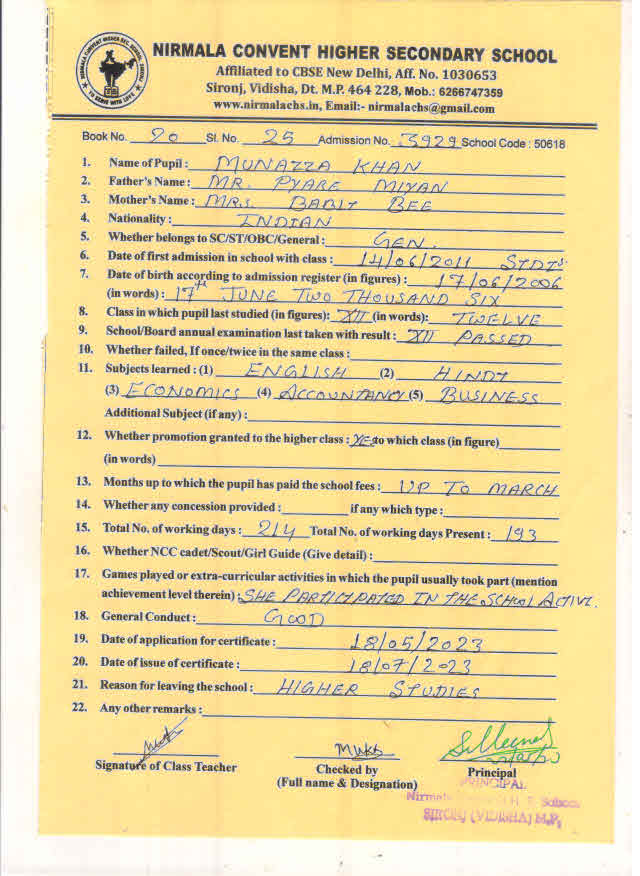 NIRMALA CONVENT HIGHER SECONDARY SCHOOL
Affiliated to CBSE New Delhi, Aff. No. 1030653
Sironj, Vidisha, Dt. M.P. 464 228, Mob.: 6266747359
www.nirmalachs.in, Email:- nirmalachs@gmail.com
Book No. 20 Sl. No. 25 Admission No. 3929 School Code : 50618
1. Name of Pupil : MUNAZZA KHAN
2. Father's Name : MR. PYARE MIYAN
3. Mother's Name : MRS. BABIT BEE
4. Nationality : INDIAN
5. Whether belongs to SC/ST/OBC/General : GEN.
6. Date of first admission in school with class : 14/06/2011
7. Date of birth according to admission register (in figures) : 17/06/2006
(in words) : 17th JUNE TWO THOUSAND SIX
8. Class in which pupil last studied (in figures): XII (in words): TWELVE
9. School/Board annual examination last taken with result : XII PASSED
10. Whether failed, If once/twice in the same class :
11. Subjects learned : (1) ENGLISH (2) HINDI
(3) ECONOMICS (4) ACCOUNTANCY (5) BUSINESS
Additional Subject (if any) :
12. Whether promotion granted to the higher class : YES to which class (in figure)
(in words)
13. Months up to which the pupil has paid the school fees : UP TO MARCH
14. Whether any concession provided : if any which type :
15. Total No. of working days : 214 Total No. of working days Present : 193
16. Whether NCC cadet/Scout/Girl Guide (Give detail) :
17. Games played or extra-curricular activities in which the pupil usually took part (mention
achievement level therein) : SHE PARTICIPATED IN THE SCHOOL ACTIVI.
18. General Conduct : GOOD
19. Date of application for certificate : 18/05/2023
20. Date of issue of certificate : 18/07/2023
21. Reason for leaving the school : HIGHER STUDIES
22. Any other remarks :
Signature of Class Teacher
Checked by
(Full name & Designation)
Principal
PRINCIPAL
H. S. School
SIRONJ (VIDISHA) M.P.